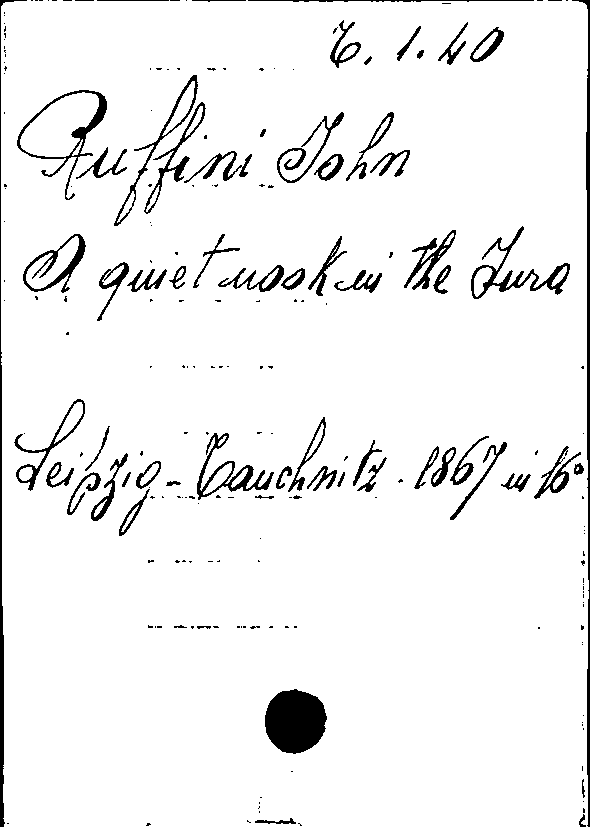 T. 1. 40
Ruffini John
A quiet nook in the Jura
Leipzig - Tauchnitz. 1867 in 16°